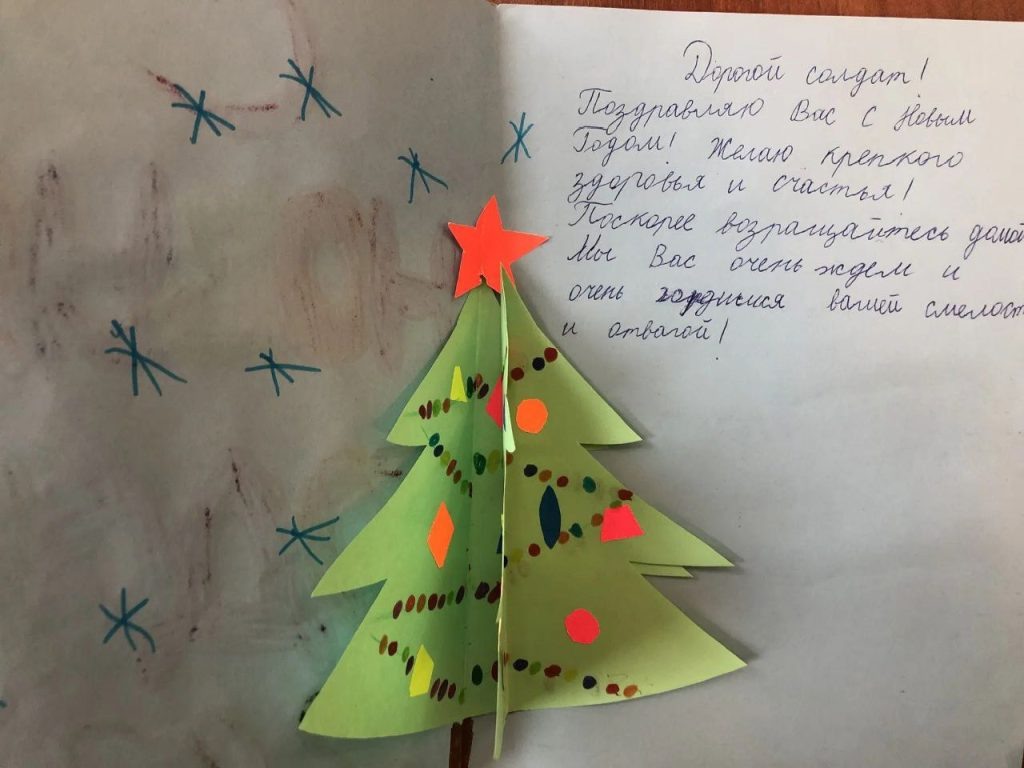 Дорогой солдат!
Поздравляю Вас с Новым
Годом! Желаю крепкого
здоровья и счастья!
Поскорее возращайтесь домой
Мы Вас очень ждем и
очень гордимся вашей смелост
и отвагой!